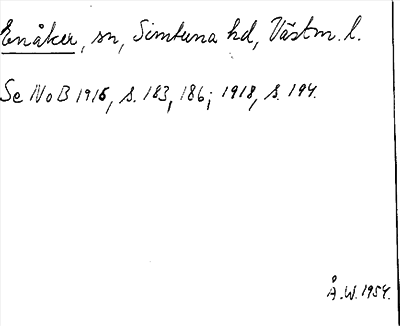 Enåker, sn, Simtuna hd, Västm. l.
Se NoB 1916, s. 183, 186; 1918, s. 194.
Å. W. 1954.